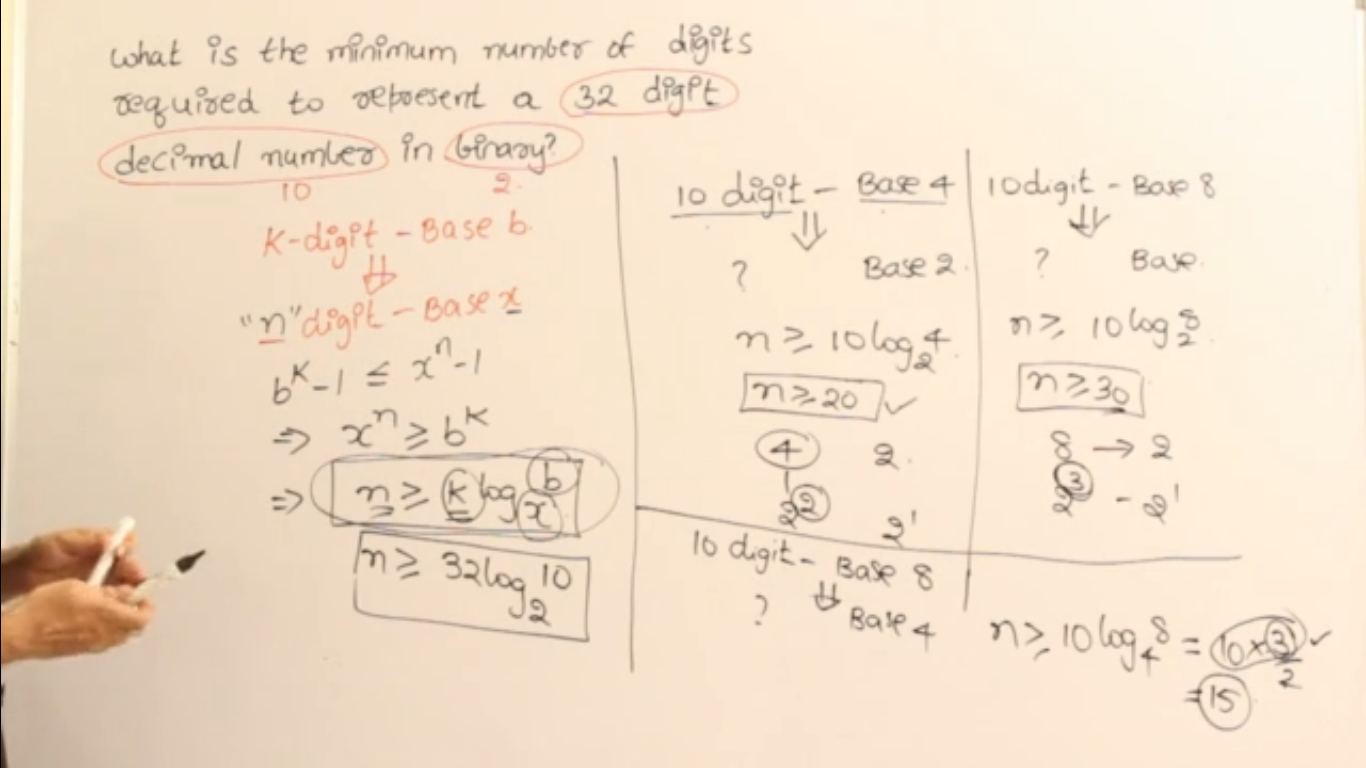 what is the minimum number of digits
required to represent a 32 digit
decimal number in binary?
10 2.
K-digit - Base b
⇓
"n" digit - Base x
b^K - 1 ≤ x^n - 1
⇒ x^n ≥ b^K
⇒ n ≥ k log_x b
n ≥ 32 log_2 10
10 digit - Base 4
⇓
? Base 2.
n ≥ 10 log_2 4.
n ≥ 20 ✓
4 2.
2^2 2^1
10 digit - Base 8
⇓
? Base.
n ≥ 10 log_2 8.
n ≥ 30
8 → 2
2^3 - 2^1
10 digit - Base 8
⇓
? Base 4
n ≥ 10 log_4 8 = 10 × 3/2 ✓
= 15